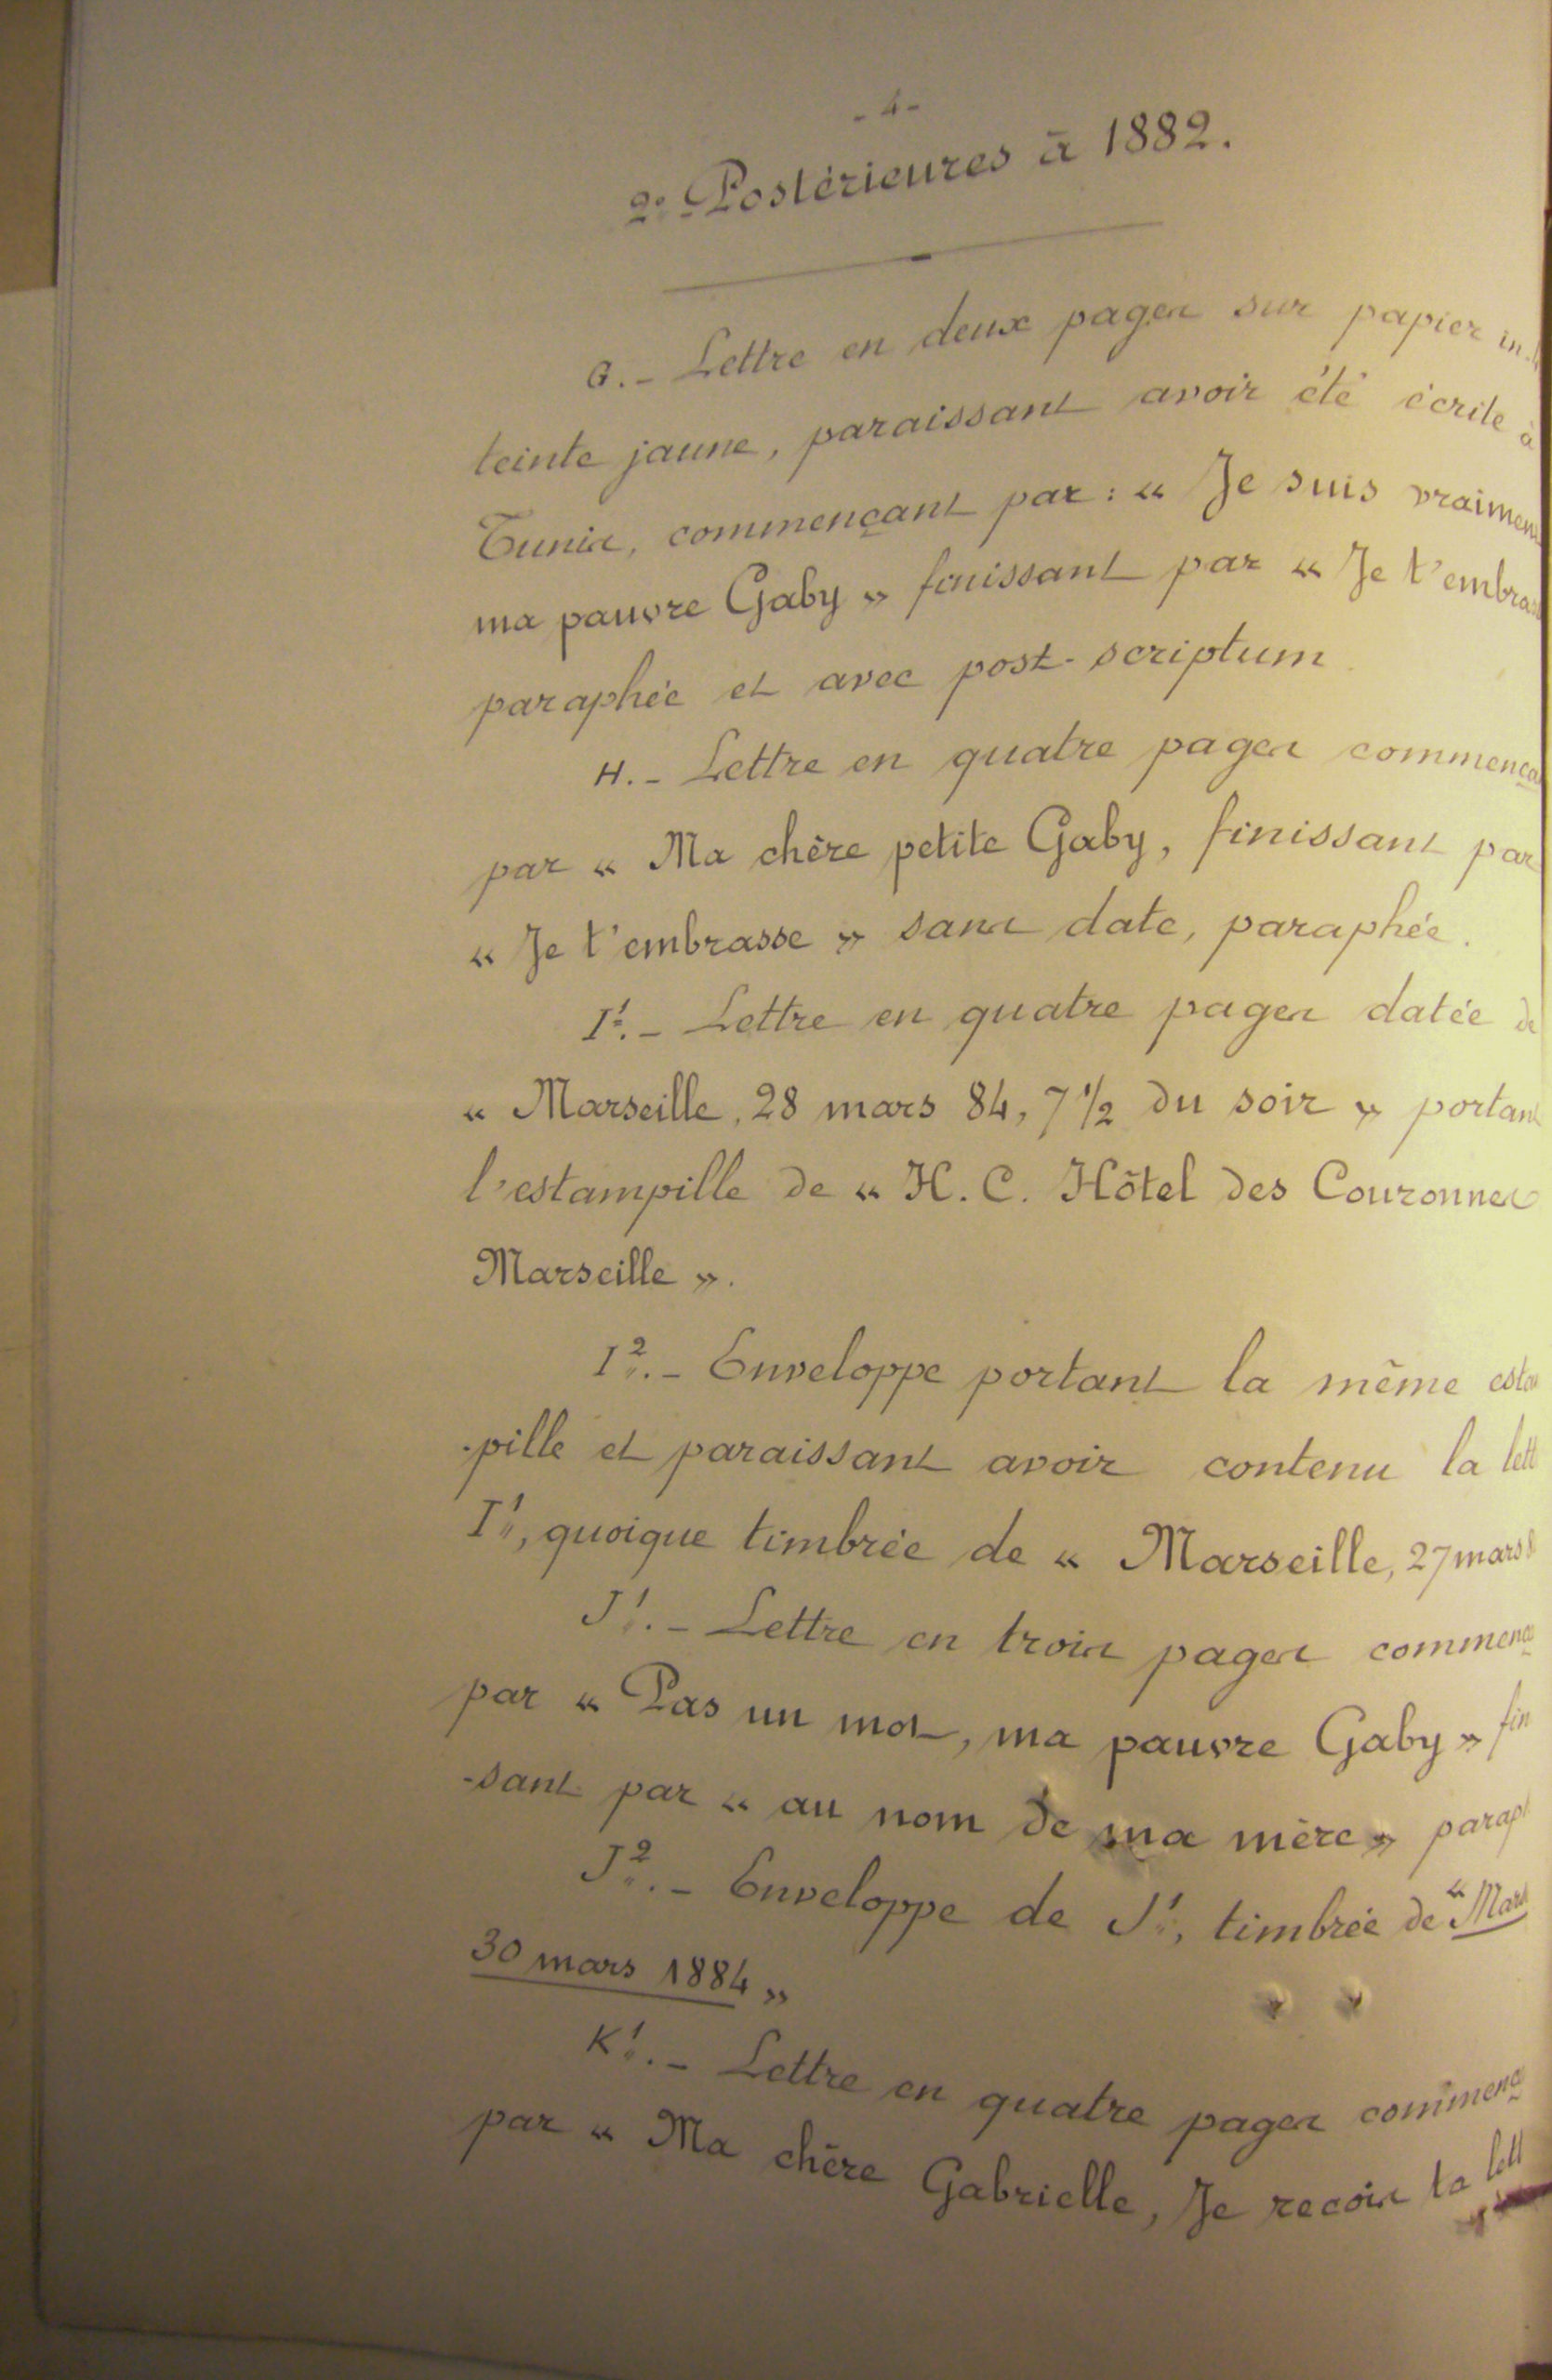 - 4 -
2º- Postérieures à 1882.
G. - Lettre en deux pages sur papier in-
teinte jaune, paraissant avoir été écrite à
Tunis, commençant par : « Je suis vraimen
ma pauvre Gaby » finissant par « Je t'embras
paraphée et avec post-scriptum
H. - Lettre en quatre pages commença
par « Ma chère petite Gaby, finissant par
« Je t'embrasse » sans date, paraphée.
I¹. - Lettre en quatre pages datée de
« Marseille, 28 mars 84, 7 ½ du soir » portant
l'estampille de « H. C. Hôtel des Couronnes
Marseille ».
I². - Enveloppe portant la même estam
-pille et paraissant avoir contenu la lett
I¹, quoique timbrée de « Marseille, 27 mars 8
J¹. - Lettre en trois pages commenç
par « Pas un mot, ma pauvre Gaby » fin
-sant par « au nom de ma mère » paraph
J². - Enveloppe de J¹, timbrée de « Mars
30 mars 1884 »
K¹. - Lettre en quatre pages commenç
par « Ma chère Gabrielle, Je recois ta lett